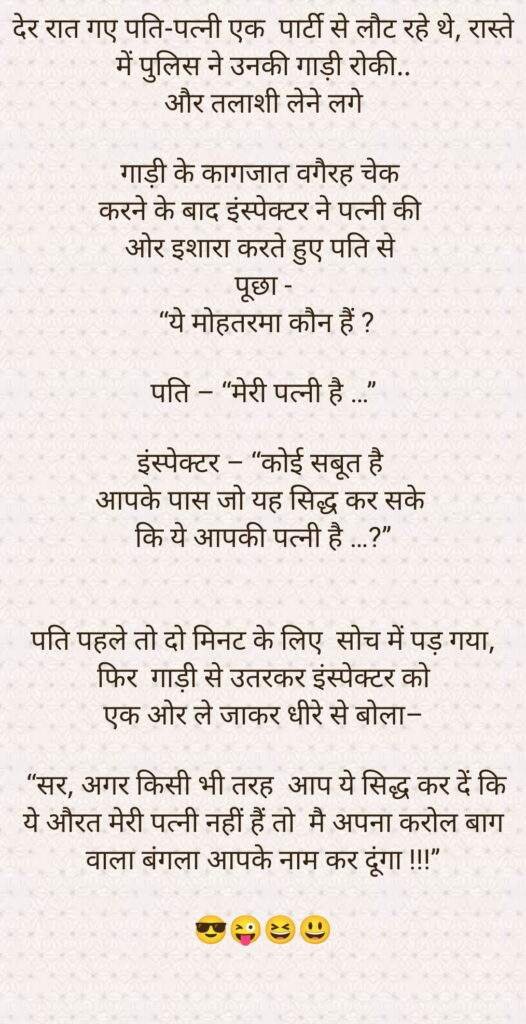 देर रात गए पति-पत्नी एक पार्टी से लौट रहे थे, रास्ते
में पुलिस ने उनकी गाड़ी रोकी..
और तलाशी लेने लगे
गाड़ी के कागजात वगैरह चेक
करने के बाद इंस्पेक्टर ने पत्नी की
ओर इशारा करते हुए पति से
पूछा -
“ये मोहतरमा कौन हैं ?
पति – “मेरी पत्नी है ...”
इंस्पेक्टर – “कोई सबूत है
आपके पास जो यह सिद्ध कर सके
कि ये आपकी पत्नी है ...?”
पति पहले तो दो मिनट के लिए सोच में पड़ गया,
फिर गाड़ी से उतरकर इंस्पेक्टर को
एक ओर ले जाकर धीरे से बोला–
“सर, अगर किसी भी तरह आप ये सिद्ध कर दें कि
ये औरत मेरी पत्नी नहीं हैं तो मै अपना करोल बाग
वाला बंगला आपके नाम कर दूंगा !!!”
😎😜😆😃